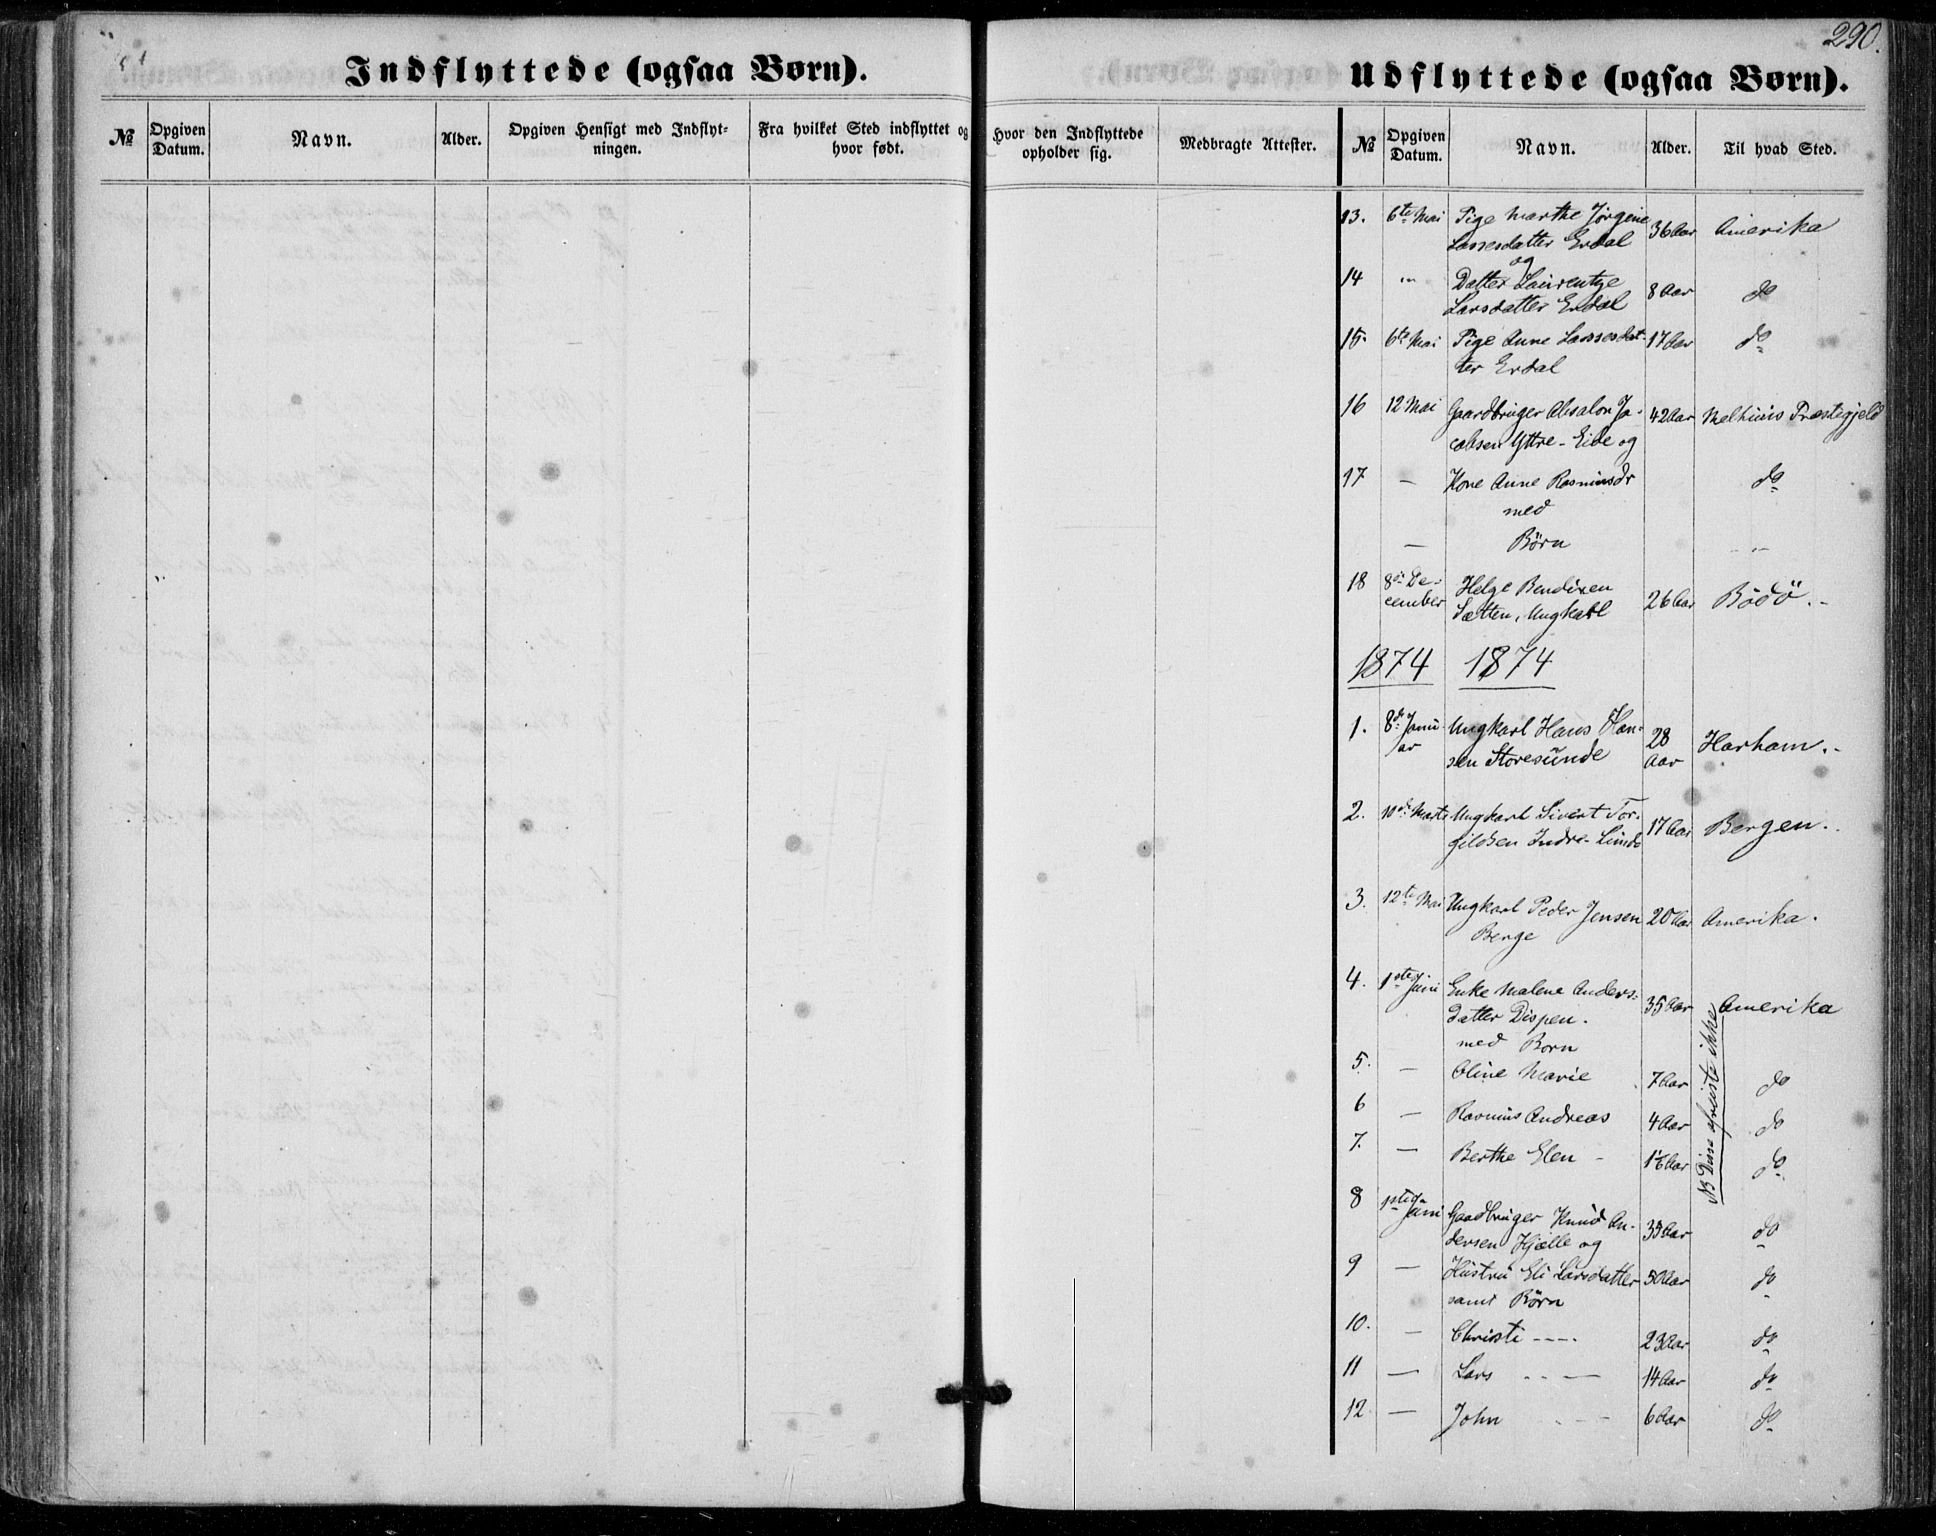 290.
Indflyttede (ogsaa Børn).
Udflyttede (ogsaa Børn).
№ Opgiven Datum. Navn. Alder. Opgiven Hensigt med Indflyt-ningen. Fra hvilket Sted indflyttet og hvor født. Hvor den Indflyttede opholder sig. Medbragte Attester. № Opgiven Datum. Navn. Alder. Til hvad Sted.
13. 6te Mai Pige Marthe Jørgine 36 Aar Amerika
Lassesdatter Erdal
og
14 " Datter Laurentze 8 Aar do
Larsdatter Erdal
15. 6te Mai Pige Anne Lassesdat- 17 Aar do
ter Erdal
16 12 Mai Gaardbruger Absalon Ja- 42 Aar Melhuus Præstegjeld
cobsen Yttre-Eide og
17 — Kone Anne Rasmusdr do
med
— Børn - " -
18 8de De- Helge Bendixen 26 Aar Bödö.-
cember Sætten, Ungkarl
1874 1874
1. 8de Janu- Ungkarl Hans Han- 28 Harham.-
ar sen Storesunde Aar
2. 10de Marts Ungkarl Sivert Tor- 17 Aar Bergen.
gildsen Indre-Lunde
3. 12te Mai Ungkarl Peder Jensen 20 Aar Amerika.
Berge
4. 1ste Juni Enke Malene Anders- 35 Aar Amerika
datter Dispen.
med Born
5. — Oline Marie 7 Aar do
6 — Rasmus Andreas 4 Aar do
7. — Berthe Elen - Aar do
NB Disse afreiste ikke
8 1ste Juni Gaadbruger Knud An- 35 Aar do
dersen Hjelle og
9 — Hustru Eli Larsdatter 50 Aar do
samt Börn
10. — Christi ---- 23 Aar do
11 — Lars - - — 14 Aar do
12 — John - - - 6 Aar do